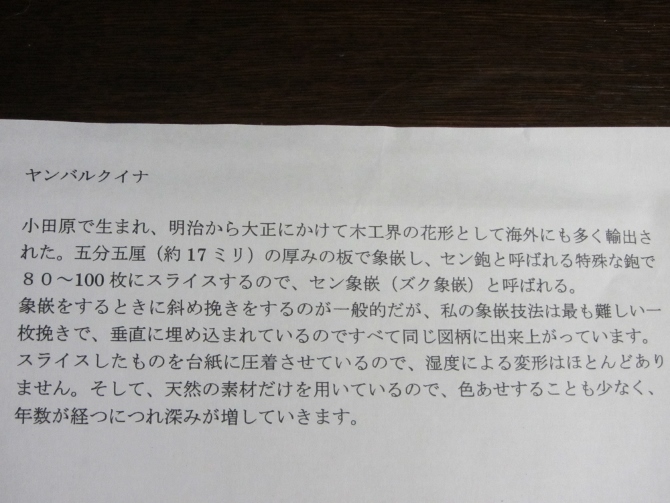 ヤンバルクイナ
小田原で生まれ、明治から大正にかけて木工界の花形として海外にも多く輸出さ
れた。五分五厘（約17ミリ）の厚みの板で象嵌し、セン鉋と呼ばれる特殊な鉋で
８０～100枚にスライスするので、セン象嵌（ズク象嵌）と呼ばれる。
象嵌をするときに斜め挽きをするのが一般的だが、私の象嵌技法は最も難しい一
枚挽きで、垂直に埋め込まれているのですべて同じ図柄に出来上がっています。
スライスしたものを台紙に圧着させているので、湿度による変形はほとんどあり
ません。そして、天然の素材だけを用いているので、色あせすることも少なく、
年数が経つにつれ深みが増していきます。